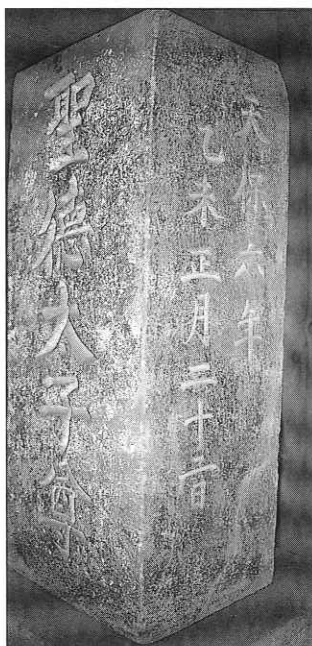 天保六年
乙未正月二十二日
聖徳太子尊